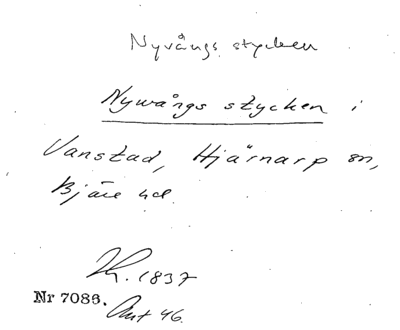 Nyvångs stycken
Nywångs stycken i
Vanstad, Hjärnarp sn,
Bjäre hd.
Kt. 1837
Nr 7086.
Ant 46.